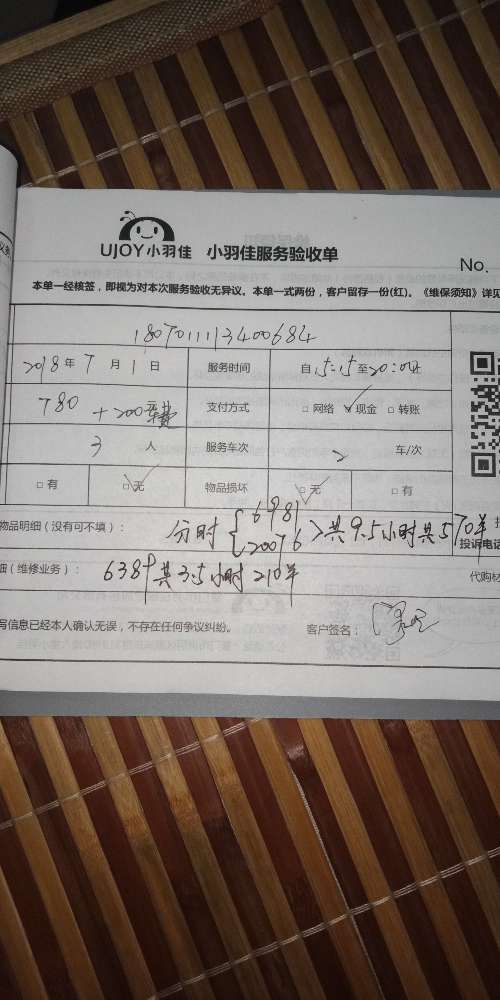 UJOY小羽佳 小羽佳服务验收单
No.
本单一经核签，即视为对本次服务验收无异议。本单一式两份，客户留存一份(红)。《维保须知》详见
1807011113400684
2018年7月1日 服务时间 自15:15至20:00止
780 +200 支付方式 □网络 ☑现金 □转账
3人 服务车次 2 车/次
□有 ☑无 物品损坏 ☑无 □有
物品明细（没有可不填）： 分时 { 6981 20076 } 共9.5小时共570羊
投诉电话
（维修业务）： 6389共3.5小时 210羊
代购材
写信息已经本人确认无误，不存在任何争议纠纷。 客户签名：